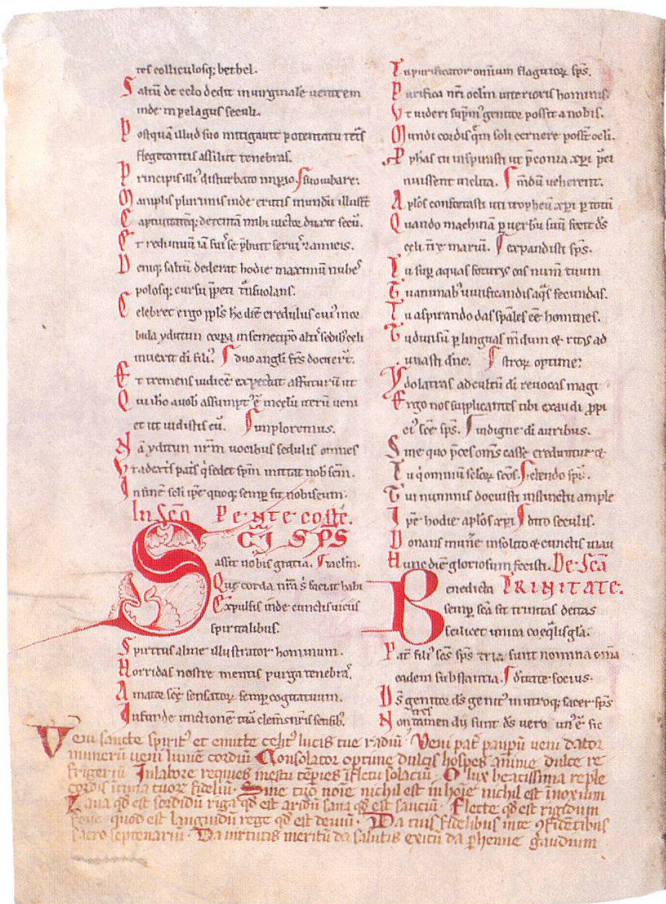 tes colliculosq; bethel.
Saltū de celo dedit in virginalē ventrem
inde in pelagus seculi.
Postquā illud suo mitigavit potentatu
flegetontis assiliit tenebras.
Principis illi disturbato
Maniplis plurimis inde erutis mundū
Captivitatēq; detentā
Et redivivū iā
Deniq; saltū dederat hodie maximū nubes
polosq; cursu p̄peti
Celebret ergo ppls hc̄ diē credulus cui mor
bida ydītun corpa in semetipso
invexit di fili'. duo angli
Et tremens iudicē expectat affuturū ut
Qui ihc a vob assumpt' ē in celū iterū veni
et ut vidistis eū. Imploremus.
Nā ydītun nr̄m vocibus sedulis omnes
Ut a dextris pat's q sedet spm mittat nob scm.
In finē scli ipe quoq; semp sit nobiscum.
In sco Pentecoste.
SCI SPS
assit nobis gratia.
Que corda nr̄a s' faciat habi
Expulsis inde cunctis viciis
spiritalibus.
Spiritus alme illustrator hominum.
Horridas nostre mentis purga tenebras.
Amator scē sensatoꝝ semp cogitatuum.
Infunde unctionē tuā clemens nr̄is sensib;.
Tu purificator omnium flagitioꝝ sps.
Purifica nr̄i oclm interioris hominis.
Ut videri supm' genitor possit a nobis.
Mundi cordis q̄m soli cernere posst ocli.
Pphas tu inspirasti ut p̄conia xpi p̄ci
nuissent inclita. mdū veherent.
Aplos confortasti uti tropheū xpi p totū
Quando machinā p verbū suū fecit ds
celi tre mariū. expandisti sps.
Tu sup aquas foturus eas numē tuum
Tu animab' vivificandis aq̄s fecundas.
Tu aspirando das spales eē homines.
Tu divisū p linguas mdum et ritus ad
unasti dne. stroꝝ optime.
Ydolatras ad cultū di revocas magi
Ergo nos supplicantes tibi exaudi ppi
ci' scē sps. indigne di auribus.
Sine quo p̄ces oms casse creduntur et
Tu q omnium scloꝝ scos. plectendo spc.
Tui numinis docuisti instinctu ample
Ipe hodie aplos xpi seclis.
Donans munē insolito et cunctis inau
Hunc diē gloriosum fecisti. De Scā
TRINITATE.
Benedicta
semp scā sit trinitas deitas
scilicet unita coeq̄lis gla.
Pat' fili' scs sps tria sunt nomina omia
eadem substantia. deitate socius.
Ds genitor ds genit' in utroq; sacer sps
Non tamen dij sunt ds verus un' ē sic
Veni sancte spirit' et emitte celit' lucis tue radiū. Veni pat' paupū veni dator
munerū veni lumē cordiū Consolator optime dulcis hospes anime dulce re
frigeriū In labore requies in estu tēpies ī fletu solaciū. O lux beatissima reple
cordis intima tuoꝝ fideliū. Sine tuo noīe nichil est in hoīe nichil est inoxium
Lava qd est sordidū riga qd est aridū sana qd est sauciū. Flecte qd est rigidum
fove quod est languidū rege qd est deviū. Da tuis fidelibus in te ɔfidētibus
sacro septenariū. Da virtutis meritū da salutis exitū da phenne gaudium